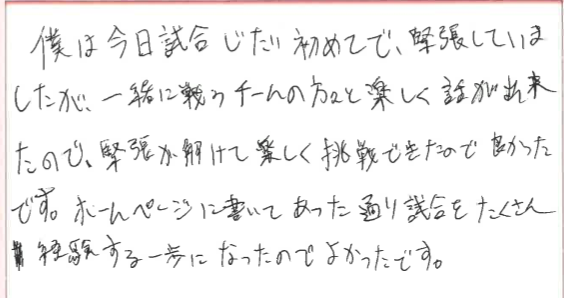 僕は今日試合じたい初めてで、緊張していま
したが、一緒に戦うチームの方々と楽しく話が出来
たので、緊張が解けて楽しく挑戦できたので良かった
です。ホームページに書いてあった通り試合をたくさん
経験する一歩になったのでよかったです。